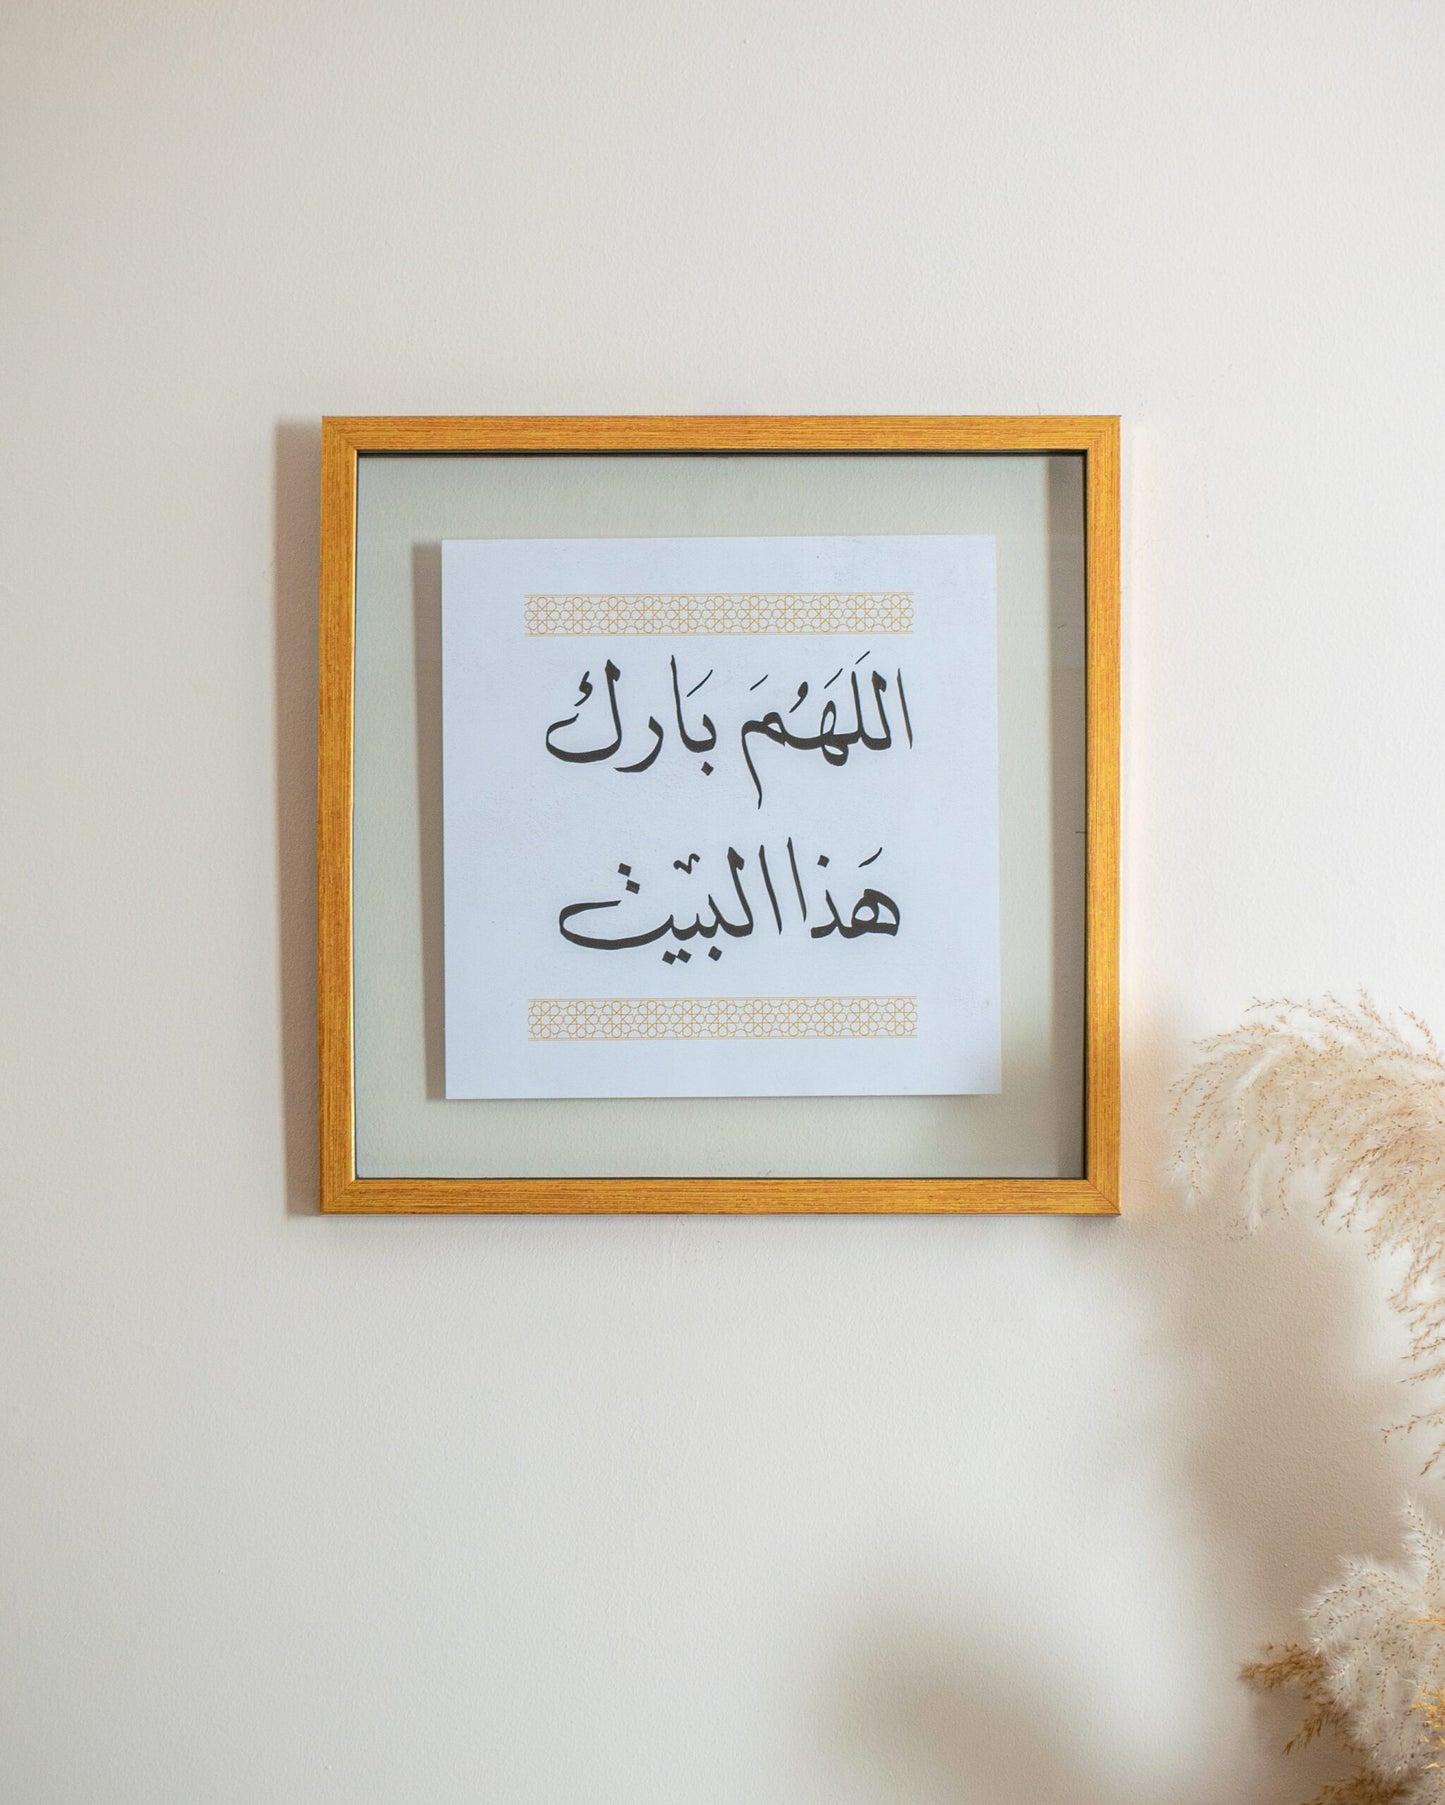 اللَهُمَ بَارك
هَذا البيْت